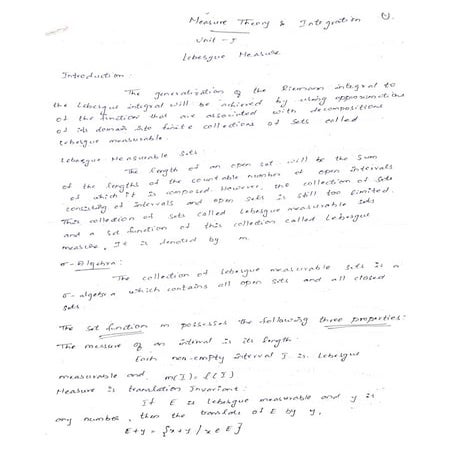 Measure Theory & Integration
Unit - I
Lebesgue Measure
Introduction:
The generalization of the Riemann integral to
the Lebesgue integral will be achieved by using approximations
of the function that are associated with decompositions
of its domain into finite collections of sets called
Lebesgue measurable.
Lebesgue Measurable Sets:
The length of an open set will be the sum
of the lengths of the countable number of open intervals
of which it is composed. However, the collection of sets
consisting of intervals and open sets is still too limited.
This collection of sets called Lebesgue measurable sets
and a set function of this collection called Lebesgue
measure. It is denoted by m.
σ-Algebra:
The collection of Lebesgue measurable sets is a
σ-algebra which contains all open sets and all closed
sets
The set function m possesses the following three properties:
The measure of an interval is its length:
Each non-empty interval I is Lebesgue
measurable and m(I) = l(I)
Measure is translation Invariant:
If E is Lebesgue measurable and y is
any number, then the translate of E by y,
E+y = {x+y / x∈E}